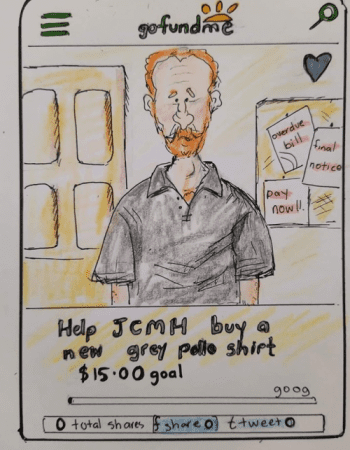 gofundme
overdue
bill
final
notice
pay
now!!
Help JCMH buy a
new grey pollo shirt
$15.00 goal
goog
0 total shares f share 0 t tweet 0